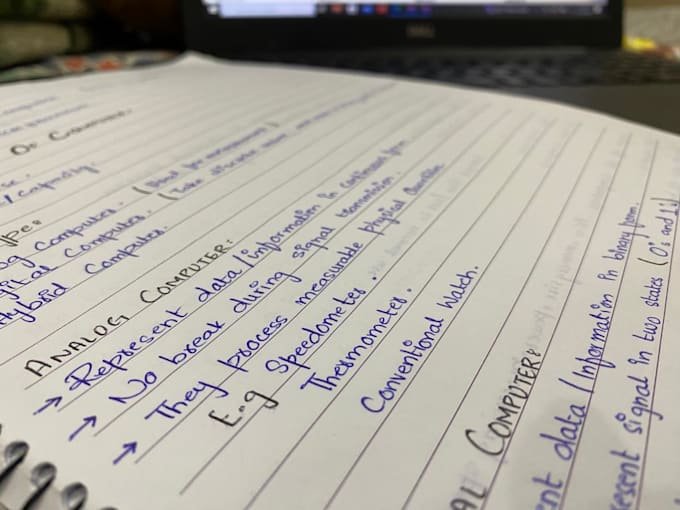 Of Computer.
/Capacity.
Type:
Analog Computer. (Used for measurement)
Digital Computer. (Take discrete
Hybrid Computer.
ANALOG COMPUTER:
→ Represent data/information in continuous form
→ No break during signal transmission.
→ They process measurable physical Quantities
E.g Speedometer.
Thermometer.
Conventional Watch.
AL COMPUTER:
ent data/Information in binary form.
resent signal in two states (0's and 1's)
DELL